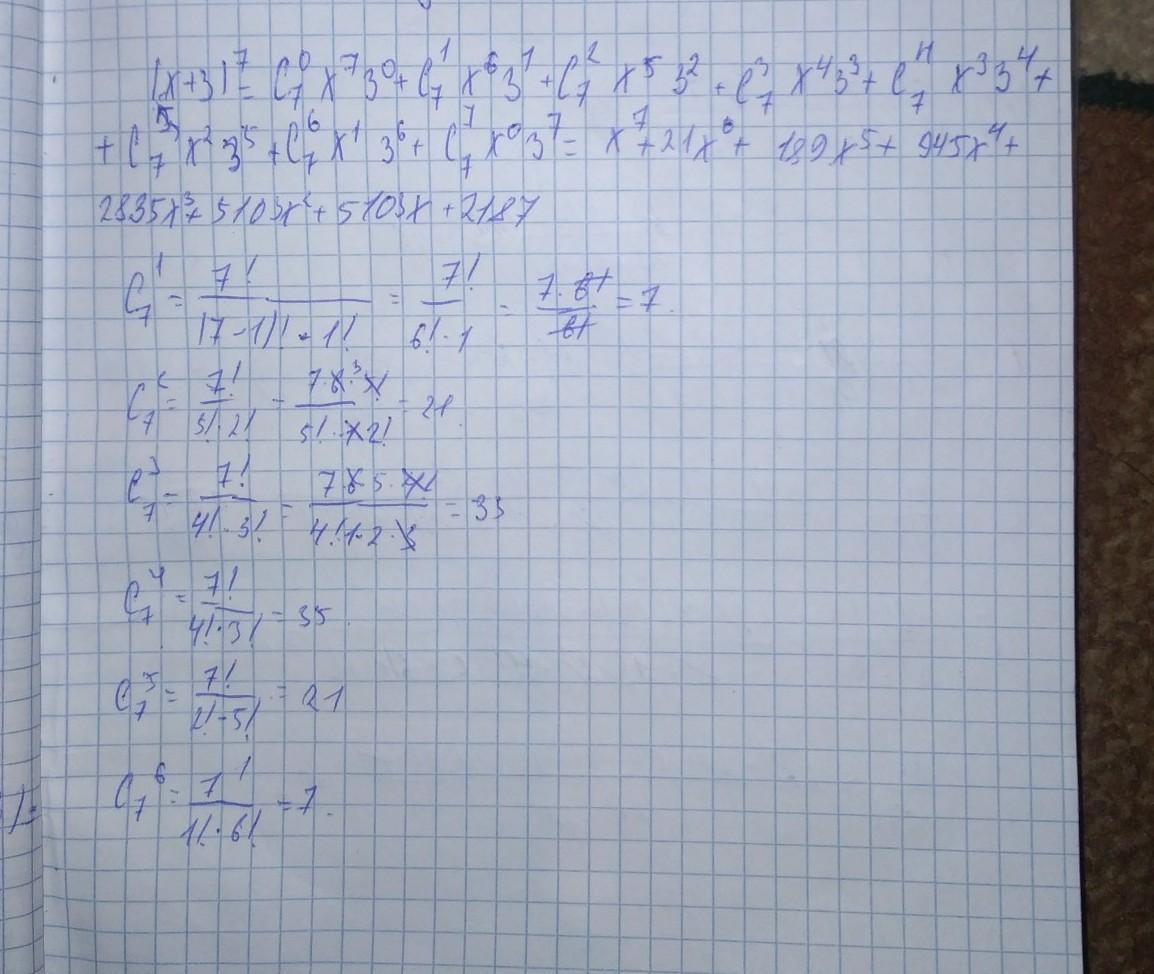 (x+3)⁷ = C₇⁰ x⁷3⁰ + C₇¹ x⁶3¹ + C₇² x⁵3² + C₇³ x⁴3³ + C₇⁴ x³3⁴ +
+ C₇⁵ x²3⁵ + C₇⁶ x¹ 3⁶ + C₇⁷ x⁰3⁷ = x⁷ + 21x⁶ + 189x⁵ + 945x⁴ +
2835x³ + 5103x² + 5103x + 2187
C₇¹ = 7! / (7-1)! · 1! = 7! / 6! · 1 = 7 · 6! / 6! = 7.
C₇² = 7! / 5! · 2! = 7 · 6 ³ · 5! / 5! · 1 · 2! = 21
C₇³ = 7! / 4! · 3! = 7 · 6 · 5 · 4! / 4! · 1 · 2 · 3 = 35
C₇⁴ = 7! / 4! · 3! = 35.
C₇⁵ = 7! / 2! · 5! = 21
C₇⁶ = 7! / 1! · 6! = 7.